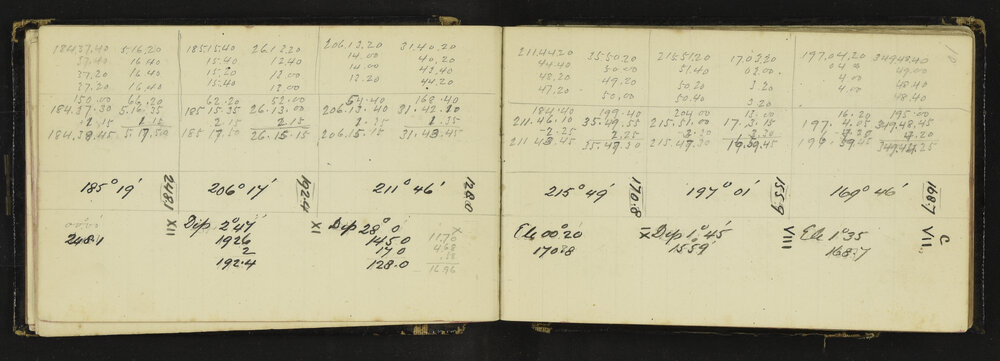 184.37.40 5.16.20 185.15.40 26.13.20 206.13.20 31.40.20
37.40 16.40 15.40 12.40 14.00 40.20
37.20 16.40 15.20 13.00 14.00 43.40
37.20 16.40 15.40 13.00 13.20 44.20
150.00 66.20 62.20 52.00 54.40 168.40
184.37.30 5.16.35 185 15 35 26.13.00 206.13.40 31.42.10
2.15 2.15 2 15 2.15 1.35 1.35
184.39.45 185 17.50 26.15 15 206.15.15 31.43.45
185° 19' 248.1 206° 17' 192.4 211° 46' 128.0
XII Dip. 2° 47' XI Dip 28° 0'
248.1 1926 145.0 11.70
2 17 0 4.68
192.4 128.0 16.96
211.44.20 35.50.20 215.51.20 17.03.20 197.04.20 349.48.40
44.40 50.00 51.40 03.00 49.00
48.20 49.20 50.20 4.00 48.40
47.20 50.00 50.40 3.20 4.00 48.40
184.40 199.40 204.00 13.00 16.20 195.00
211.46.10 35.49.55 215.51.00 17.3.15 197.4.05 349.48.45
-2.25 2.25 -3.30 3.30
211 43.45 35.47.30 215.47.30
215° 49' 170.8 197° 01' 155.9 169° 46' 168.7
Ele 00° 20 IX Dip 1° 45' VIII Ele 1° 35 C VII
170.8 155.9 168.7